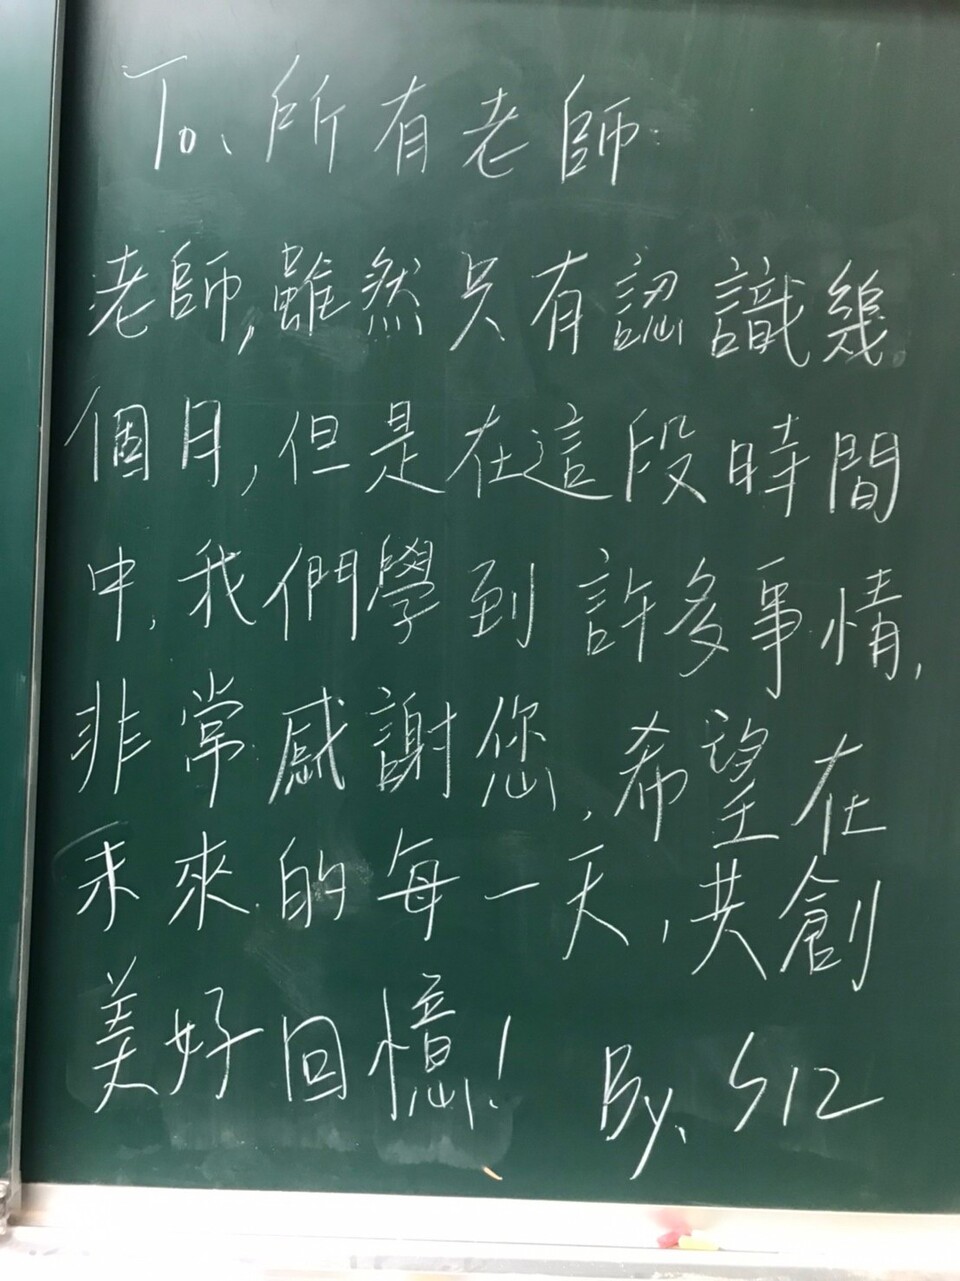 To、所有老師:
老師,雖然只有認識幾
個月,但是在這段時間
中,我們學到許多事情,
非常感謝您,希望在
未來的每一天,共創
美好回憶!   By、512